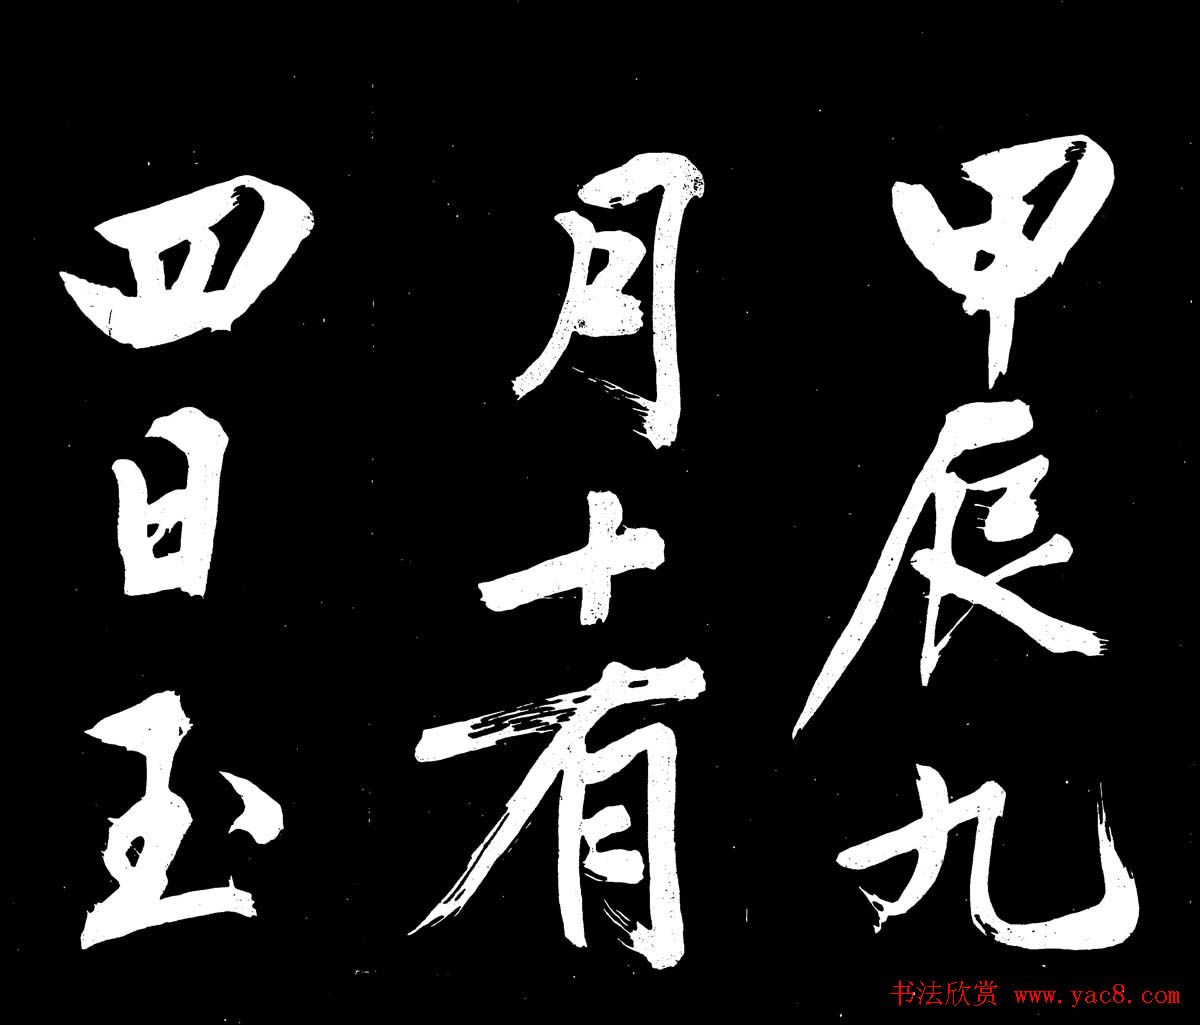 甲辰九
月十有
四日玉
书法欣赏 www.yac8.com